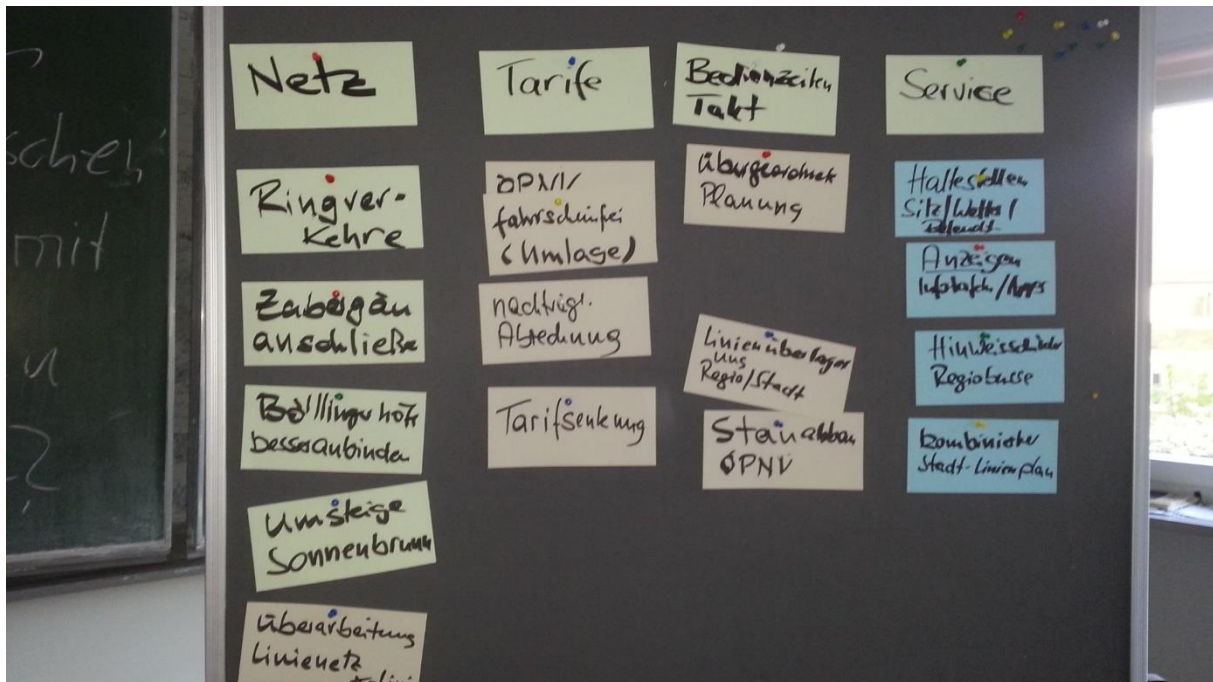 Netz
Ringver-
kehre
Zabergäu
anschließe
Böllinger höfe
besser anbinden
Umsteige
Sonnenbrunn
Überarbeitung
Linienetz
Tarife
ÖPNV
fahrscheinfrei
(Umlage)
nachträgl.
Abrechnung
Tarifsenkung
Bedienzeiten
Takt
Übergeordnete
Planung
Linienüberlager
ung
Regio/Stadt
Stauabbau
ÖPNV
Service
Haltestellen
Sitz/Wetter/
Anzeigen
Infotafeln/Apps
Hinweisschilder
Regiobusse
kombinierter
Stadt-Linienplan
schei
mit